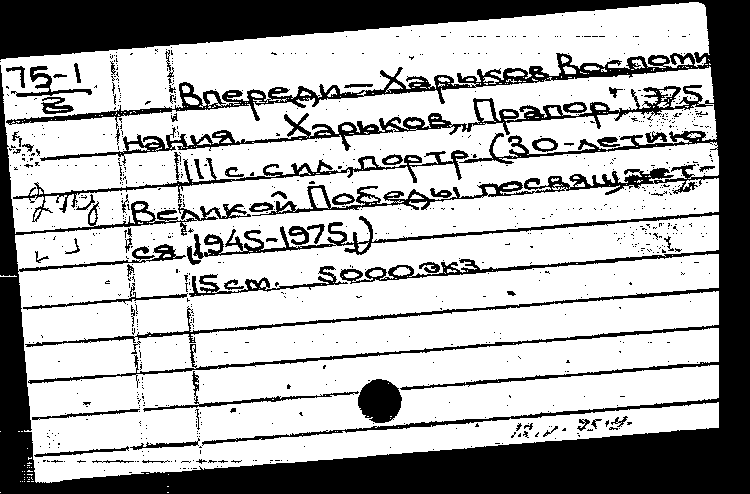 75-1
В
Впереди — Харьков Воспоми
нания. Харьков, „Прапор", 1975.
111 с. с ил., портр. (30-летию
Великой Победы посвящает-
ся, 1945-1975,)
15 cm. 5000 экз.